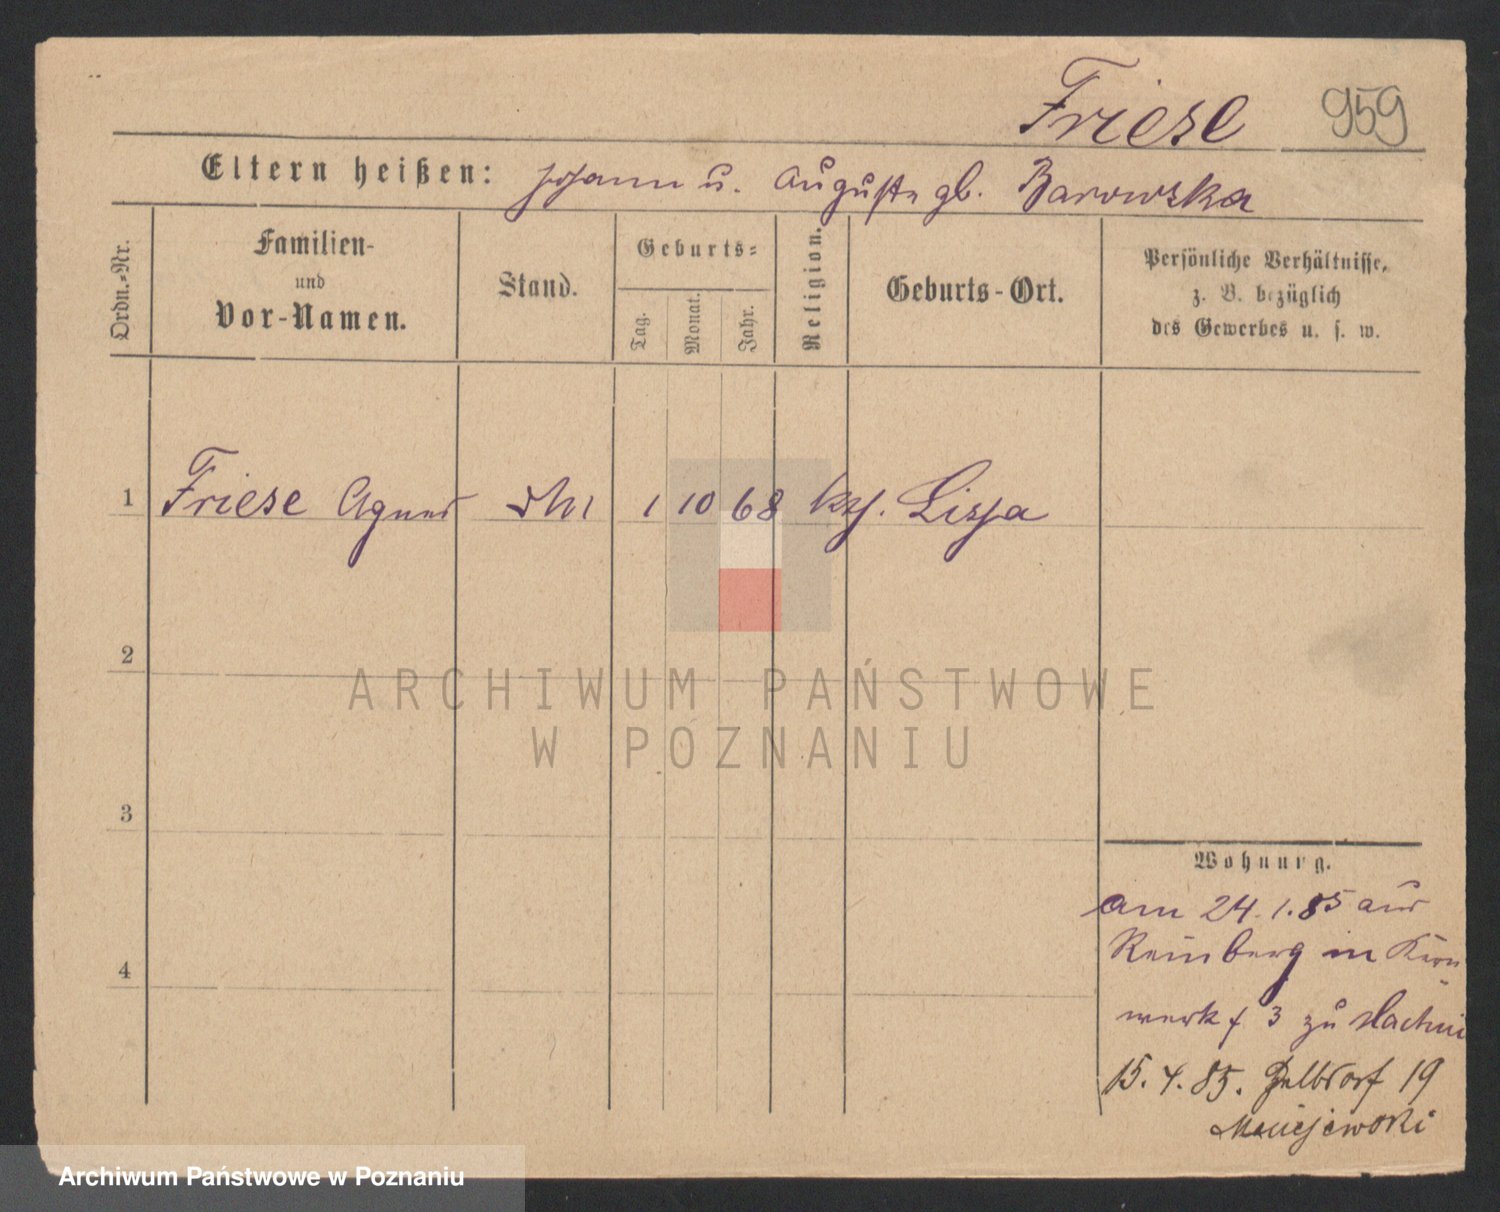 Friese 959
Eltern heißen: Johann u. Auguste gb. Barowska
Ordn.-Nr.
Familien-
und
Vor-Namen.
Stand.
Geburts-
Tag.
Monat.
Jahr.
Religion.
Geburts-Ort.
Persönliche Verhältnisse,
z. B. bezüglich
des Gewerbes u. s. w.
1 Friese Agnes 1 10 68 kth. Lissa
2
3
4
ARCHIWUM PAŃSTWOWE
W POZNANIU
Wohnung.
am 24.1.85 aus
in
werk 3 zu
15.4.85. 19
Maciejewski
Archiwum Państwowe w Poznaniu